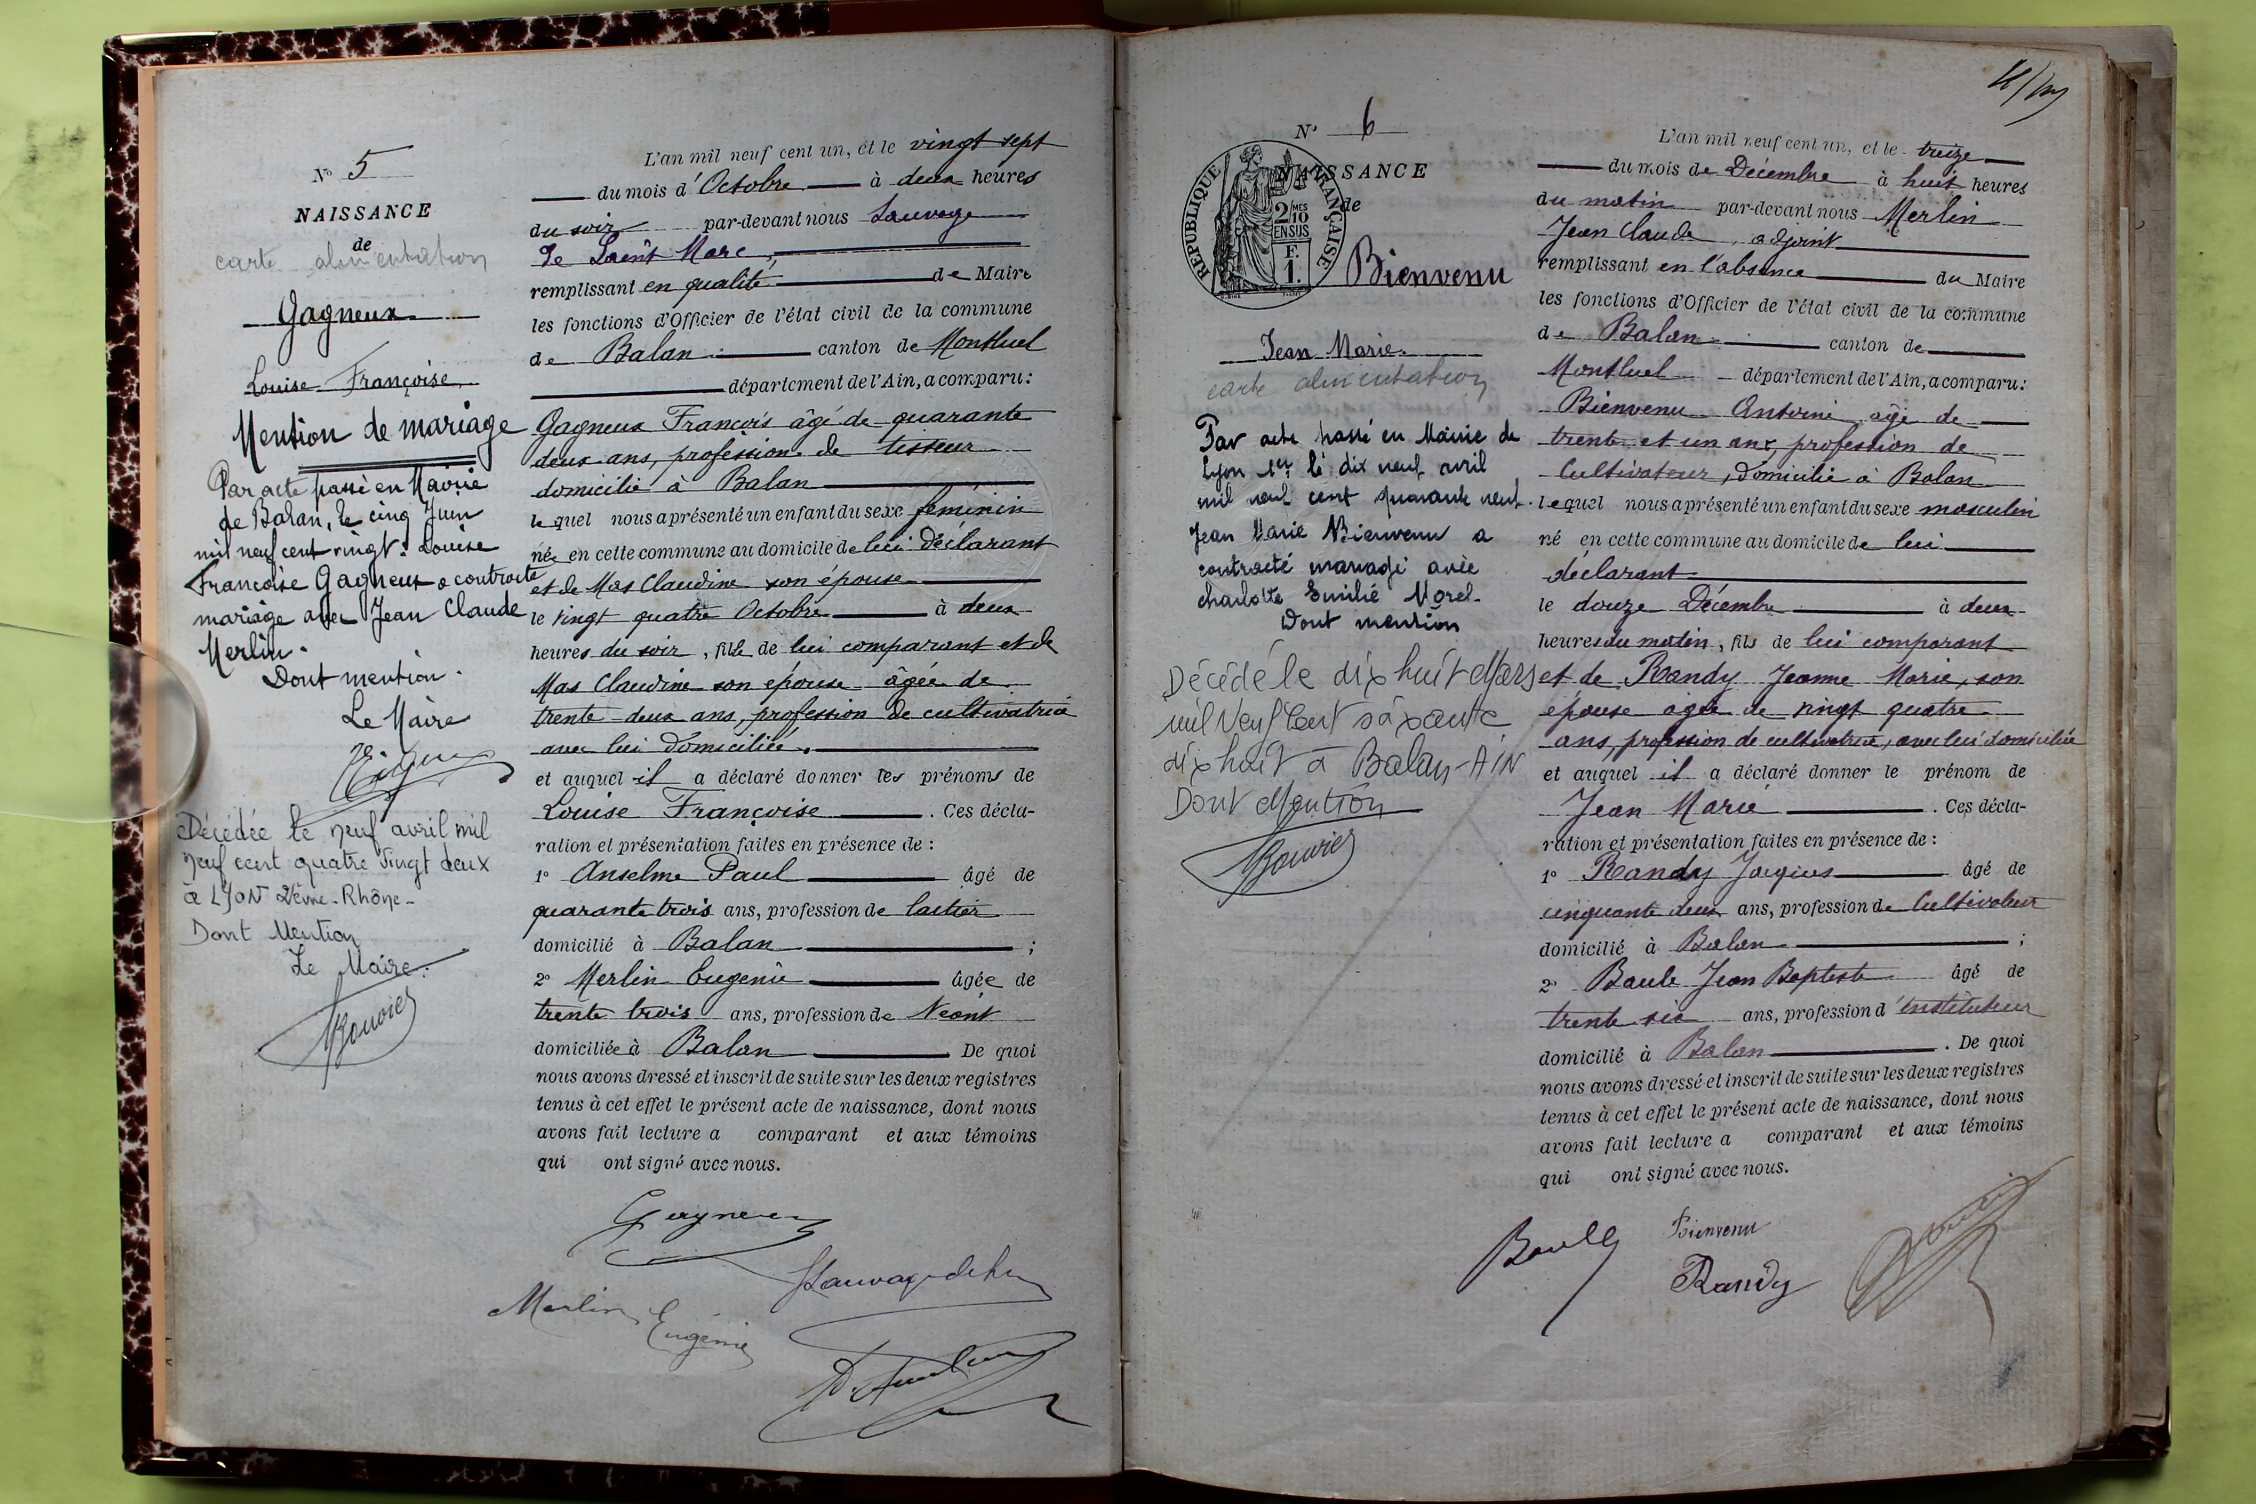 N° 5
NAISSANCE
de
carte alimentation
Gagneux
Louise Françoise
Mention de mariage
Par acte passé en Mairie
de Balan, le cinq Juin
mil neuf cent vingt. Louise
Françoise Gagneux a contracté
mariage avec Jean Claude
Merlin.
Dont mention.
Le Maire
Décédée le neuf avril mil
neuf cent quatre vingt deux
à LYON 2ème - Rhône -
Dont Mention
Le Maire.
Bouvier
L'an mil neuf cent un, et le vingt sept
du mois d'Octobre à deux heures
du soir par-devant nous Sauvage
de Saint Marc,
remplissant en qualité de Maire
les fonctions d'Officier de l'état civil de la commune
de Balan canton de Montluel
département de l'Ain, a comparu:
Gagneux François âgé de quarante
deux ans, profession de tisseur
domicilié à Balan
lequel nous a présenté un enfant du sexe féminin
née en cette commune au domicile de lui déclarant
et de Mas Claudine son épouse
le vingt quatre Octobre à deux
heures du soir, fille de lui comparant et de
Mas Claudine son épouse âgée de
trente deux ans, profession de cultivatrice
avec lui domiciliée.
et auquel il a déclaré donner les prénoms de
Louise Françoise . Ces décla-
ration et présentation faites en présence de :
1° Anselme Paul âgé de
quarante trois ans, profession de laitier
domicilié à Balan ;
2° Merlin Eugénie âgée de
trente trois ans, profession de Néant
domiciliée à Balan De quoi
nous avons dressé et inscrit de suite sur les deux registres
tenus à cet effet le présent acte de naissance, dont nous
avons fait lecture a comparant et aux témoins
qui ont signé avec nous.
Gagneux
Merlin Eugénie
N° 6
NAISSANCE
de
RÉPUBLIQUE FRANÇAISE
2/10 MES
EN SUS
F.
1.
Bienvenu
Jean Marie.
carte alimentation
Par acte passé en Mairie de
Lyon 1er le dix neuf avril
mil neuf cent quarante neuf.
Jean Marie Bienvenu a
contracté mariage avec
Charlotte Emilie Morel.
Dont mention
Décédé le dix huit Mars
mil Neuf Cent soixante
dix huit à Balan - AIN
Dont Mention
Bouvier
L'an mil neuf cent un, et le treize
du mois de Décembre à huit heures
du matin par-devant nous Merlin
Jean Claude, adjoint
remplissant en l'absence du Maire
les fonctions d'Officier de l'état civil de la commune
de Balan canton de
Montluel département de l'Ain, a comparu:
Bienvenu Antoine âgé de
trente et un ans, profession de
Cultivateur, domicilié à Balan
lequel nous a présenté un enfant du sexe masculin
né en cette commune au domicile de lui
déclarant
le douze Décembre à deux
heures du matin, fils de lui comparant
et de Randy Jeanne Marie, son
épouse âgée de vingt quatre
ans, profession de cultivatrice, avec lui domiciliée
et auquel il a déclaré donner le prénom de
Jean Marie . Ces décla-
ration et présentation faites en présence de :
1° Randy Jacques âgé de
cinquante deux ans, profession de Cultivateur
domicilié à Balan ;
2° Baule Jean Baptiste âgé de
trente six ans, profession d'instituteur
domicilié à Balan . De quoi
nous avons dressé et inscrit de suite sur les deux registres
tenus à cet effet le présent acte de naissance, dont nous
avons fait lecture a comparant et aux témoins
qui ont signé avec nous.
Bienvenu
Baule
Randy